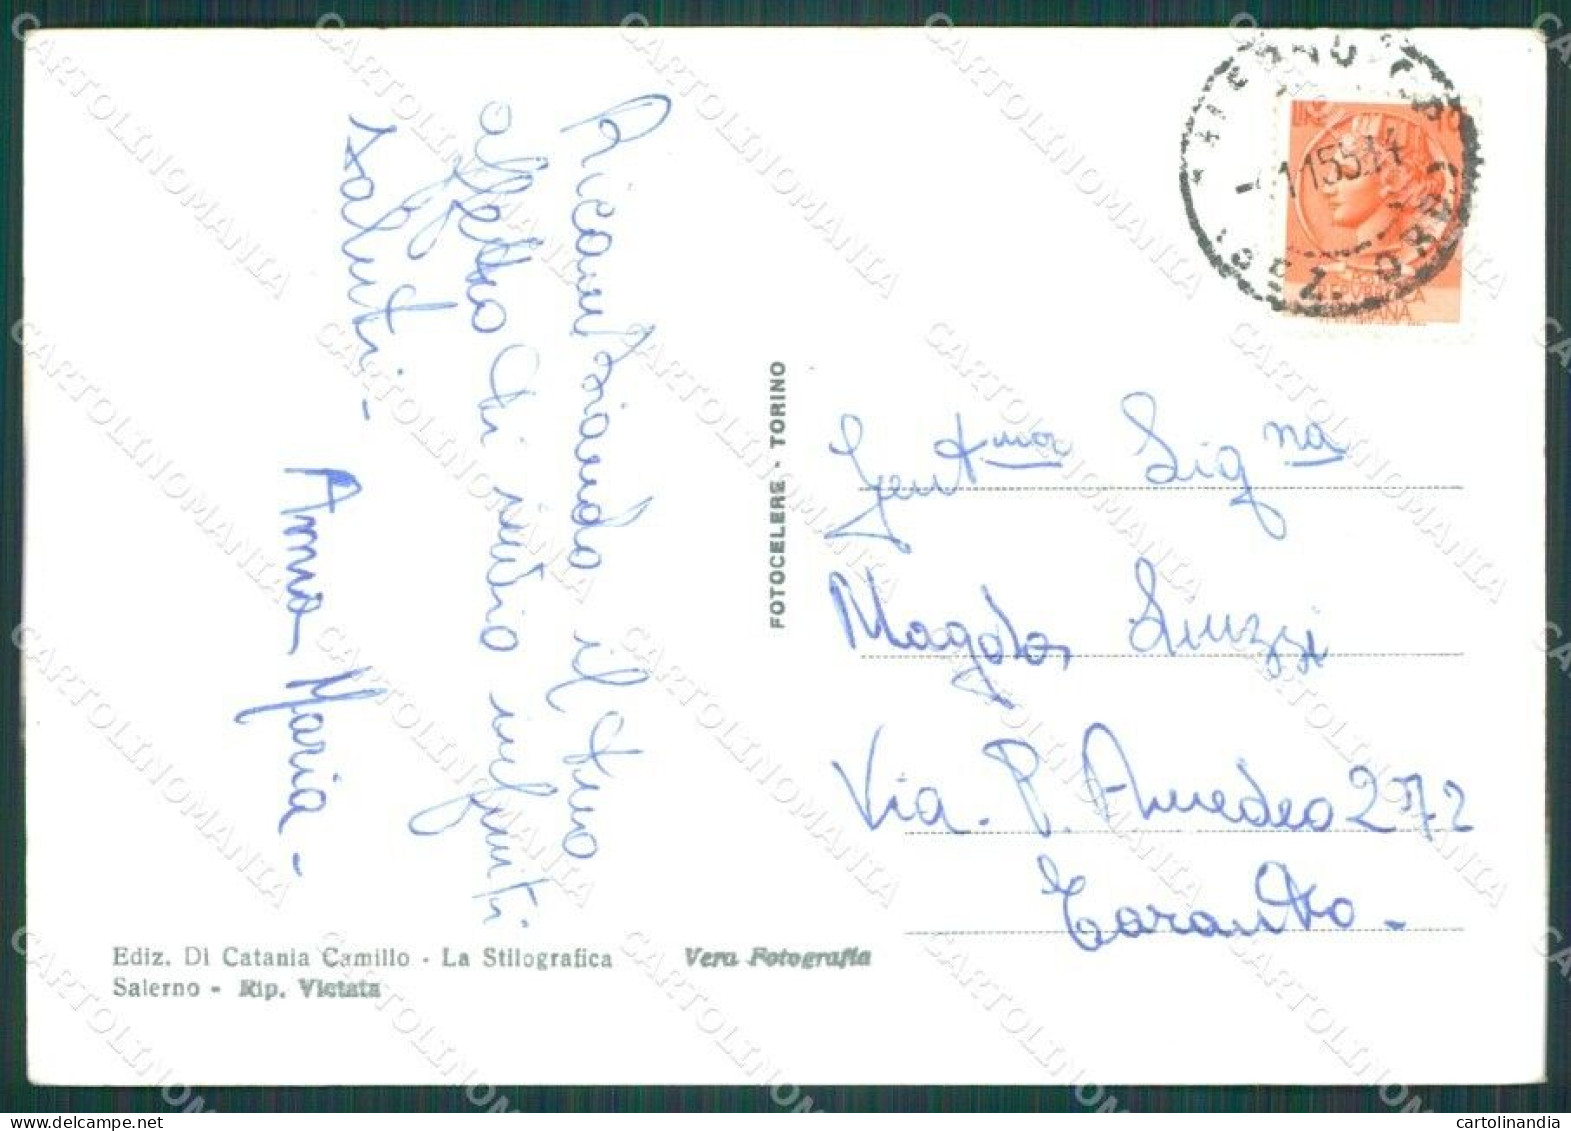 Ricambiando il tuo
affetto ti invio infiniti
saluti -
Anna Maria -
FOTOCELERE - TORINO
Ediz. Di Catania Camillo - La Stilografica
Salerno - Rip. Vietata
Vera Fotografia
LIRE
POSTE
REPUBBLICA
ITALIANA
Gent.ma Sig.na
Magda Liuzzi
Via. P. Amedeo 272
Taranto -
CARTOLINOMANIA
cartolinandia